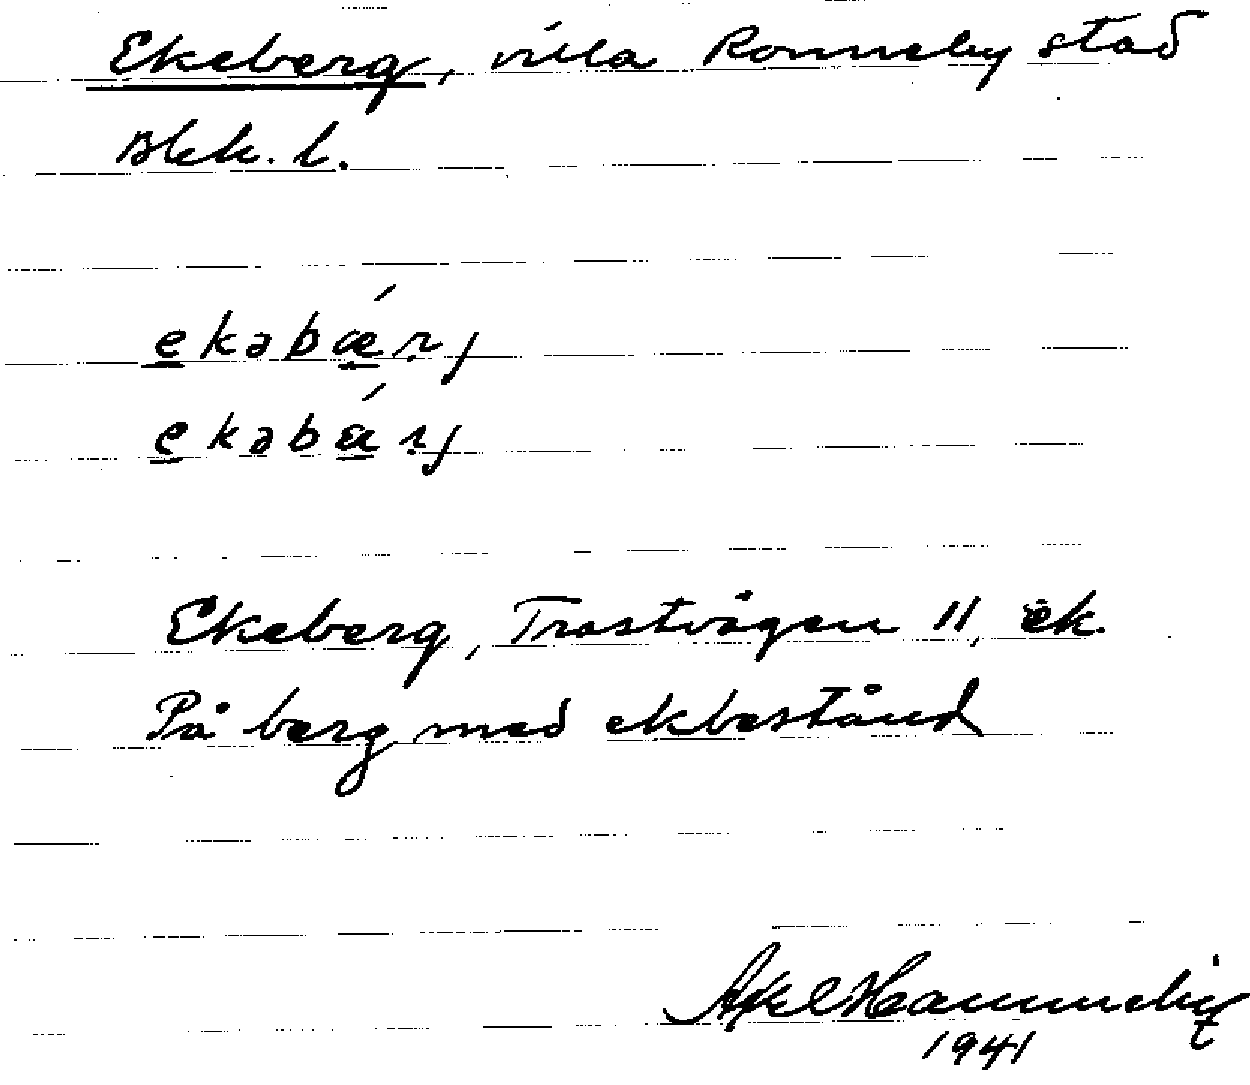 Ekeberg, villa Ronneby stad
Blek. l.
ekəbǽrj
ekəbárj
Ekeberg, Trastvägen 11, ek.
På berg med ekbestånd
Axel
1941